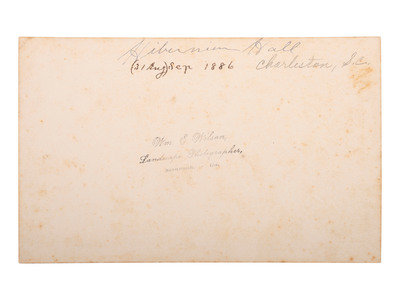 Hibernian Hall
(31 Aug) Sep 1886 Charleston, S.C.
Wm E. Wilson,
Landscape Photographer,